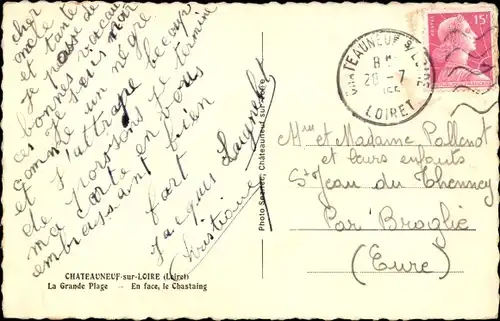 cher
oncle
et tante
Je passe de
bonnes vacances
Je suis noir
comme un nègre
et J'attrape beaucoup
de poissons Je termine
ma carte en vous
embrassant bien
fort
Jacques
Christiane
CHATEAUNEUF-sur-LOIRE (Loiret)
La Grande Plage - En face, le Chastaing
Châteauneuf-sur-Loire
CHATEAUNEUF S/LOIRE
28-7
LOIRET
15F
Mr et Madame Pallenot
et leurs enfants
St Jean du Thenney
Par Broglie
(Eure)